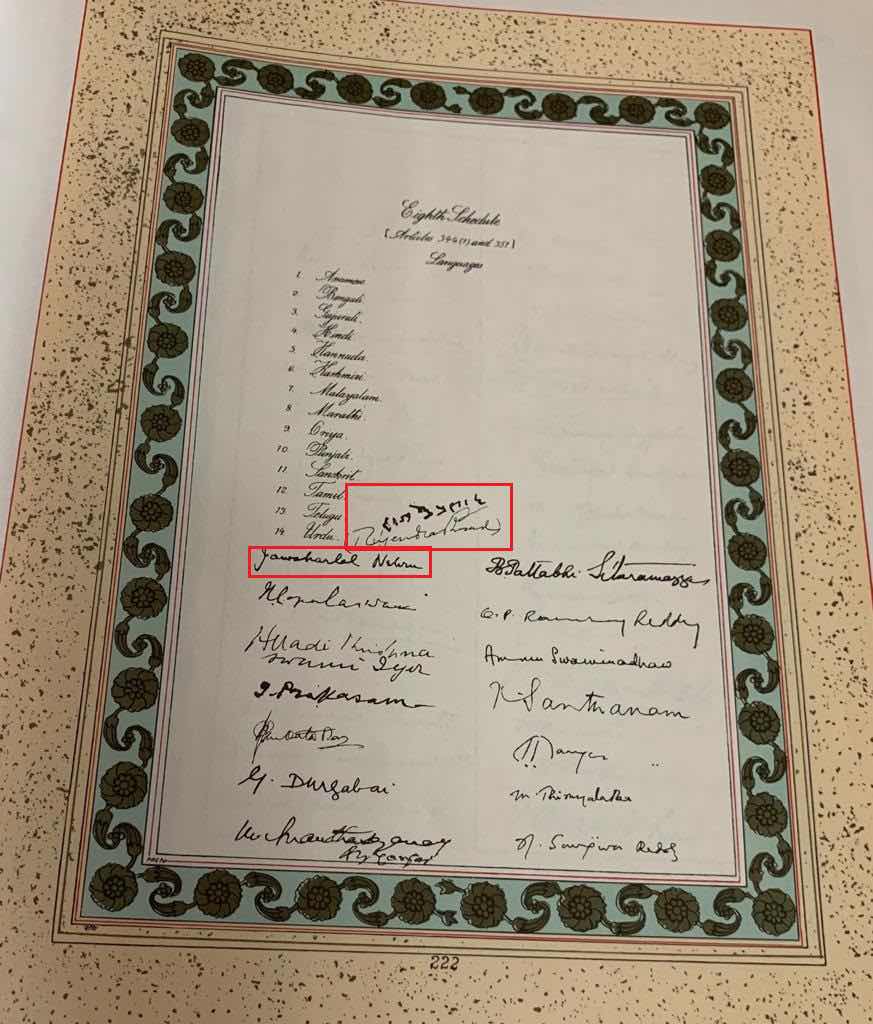 Eighth Schedule
[Articles 344(1) and 351]
Languages
1. Assamese.
2. Bengali.
3. Gujarati.
4. Hindi.
5. Kannada.
6. Kashmiri.
7. Malayalam.
8. Marathi.
9. Oriya.
10. Punjabi.
11. Sanskrit.
12. Tamil.
13. Telugu.
14. Urdu.
(Rajendra Prasad)
Jawaharlal Nehru
B. Pattabhi Sitaramayya
O. P. Ramaswamy Reddy
Alladi Krishna
swami Iyer
Ammu Swaminadhan
T. Prakasam
K. Santhanam
G. Durgabai
N. Sanjiva Reddy
222